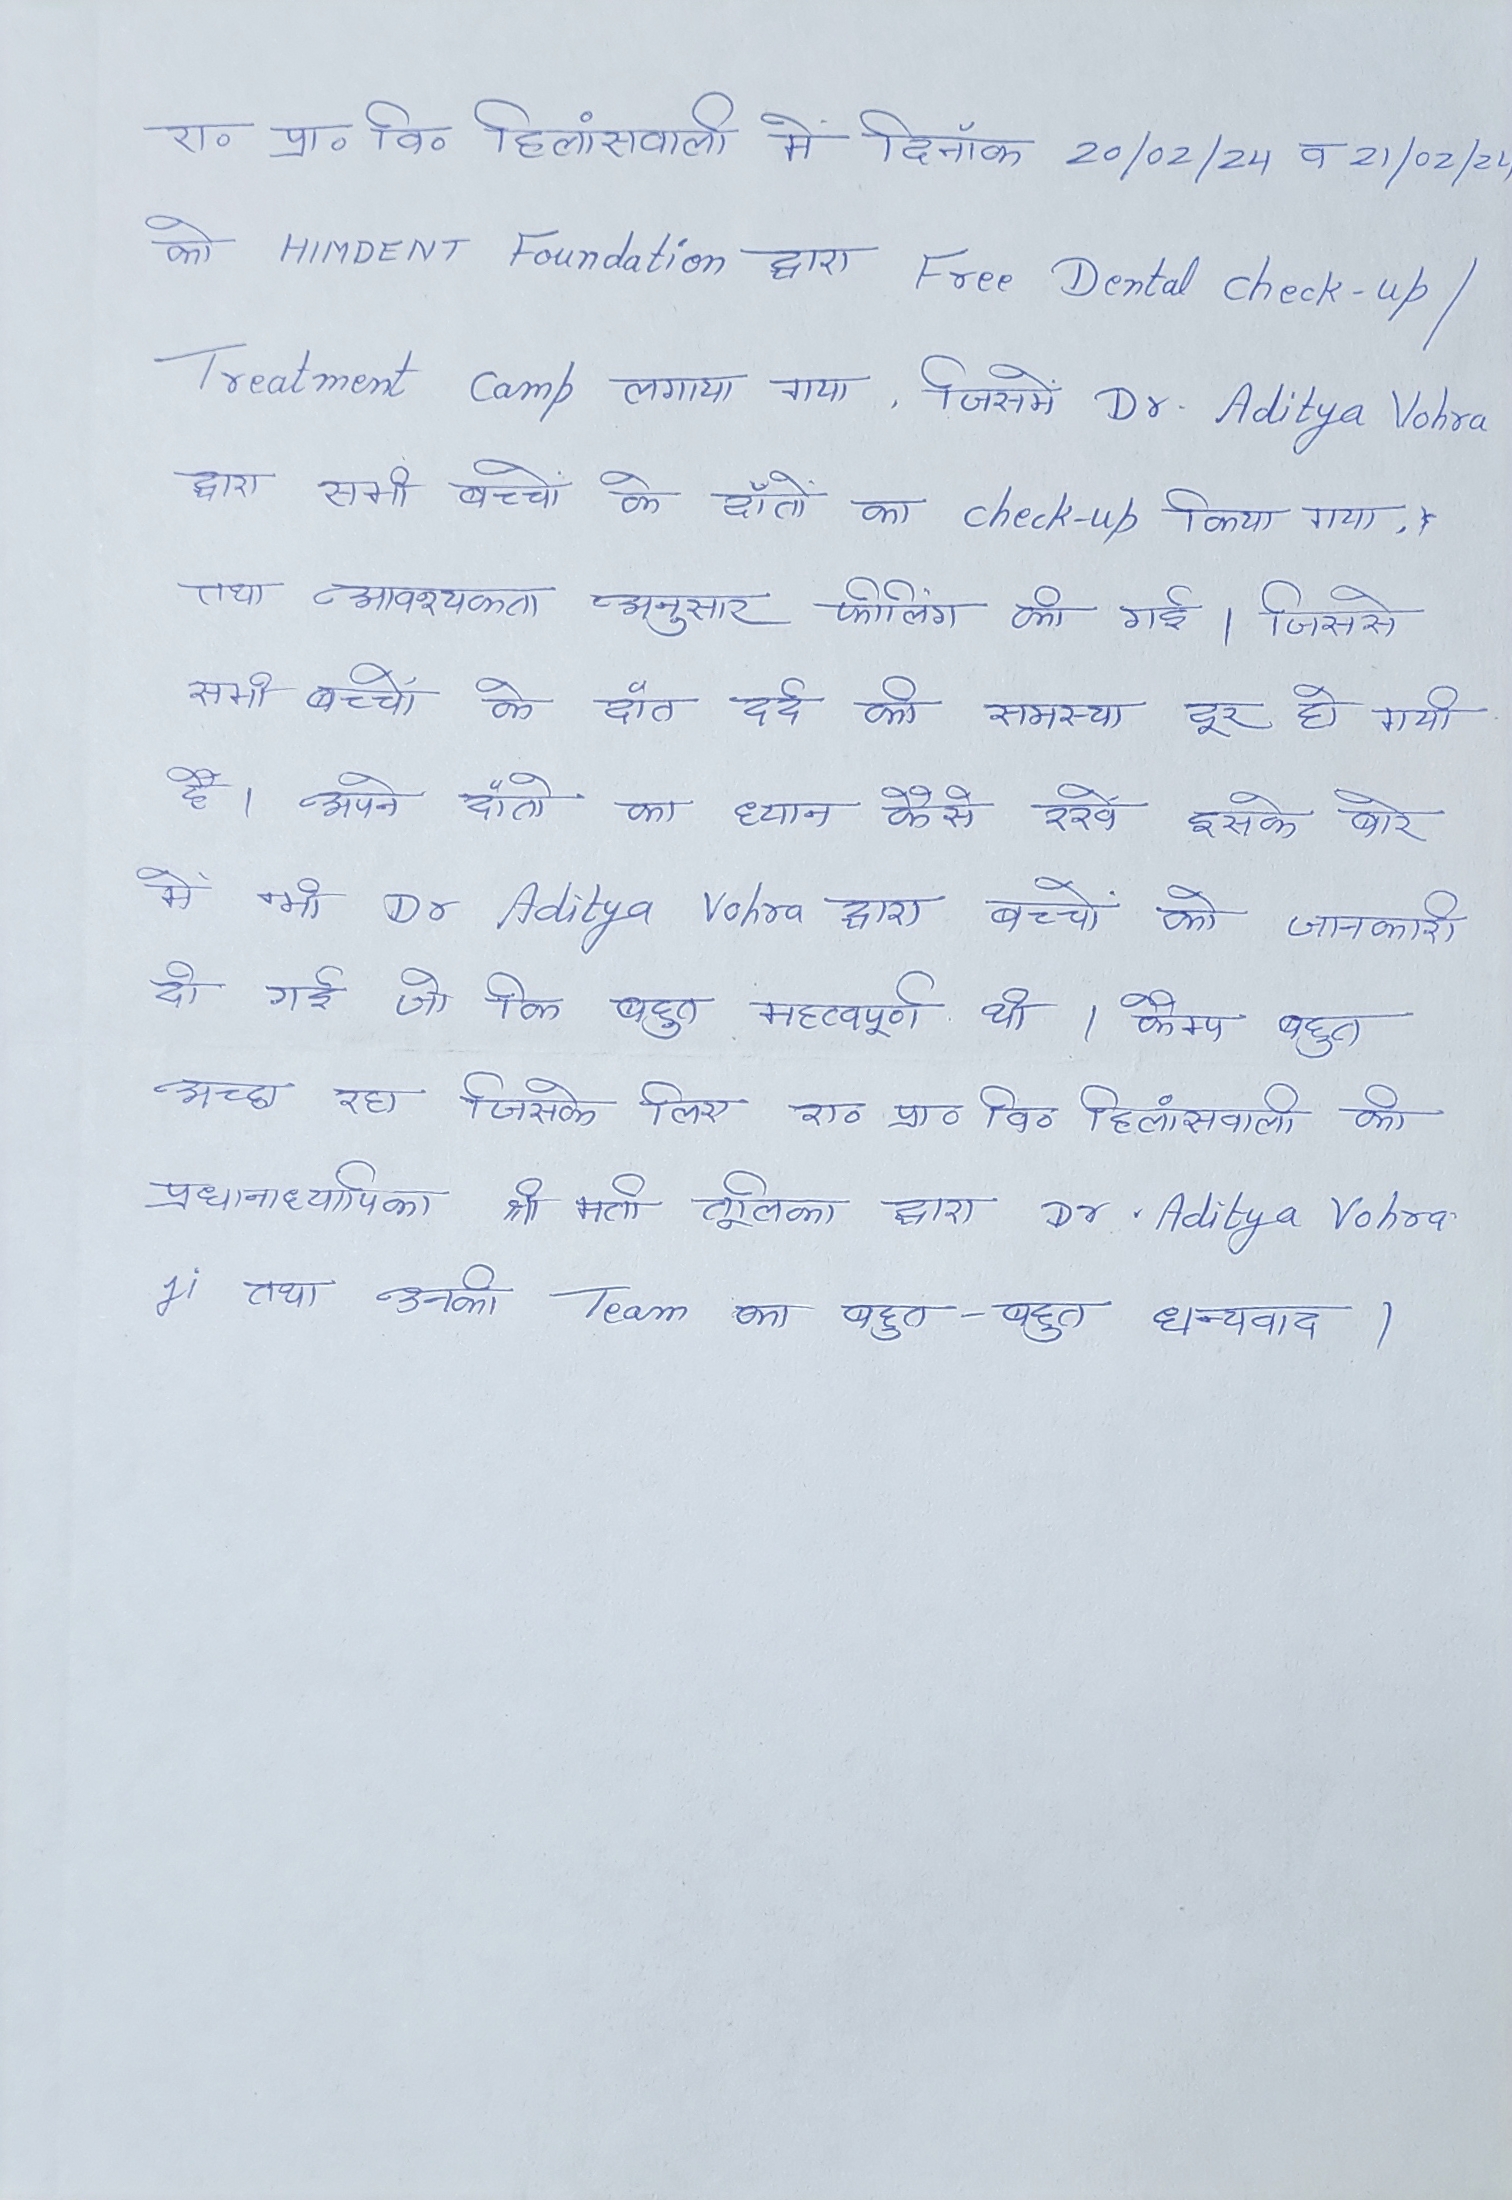 रा० प्रा० वि० हिलांसवाली में दिनाँक 20/02/24 व 21/02/24
को HIMDENT Foundation द्वारा Free Dental check-up/
Treatment Camp लगाया गया, जिसमें Dr. Aditya Vohra
द्वारा सभी बच्चों के दाँतों का check-up किया गया,
तथा आवश्यकता अनुसार फीलिंग की गई । जिससे
सभी बच्चों के दाँत दर्द की समस्या दूर हो गयी
है । अपने दाँतो का ध्यान कैसे रखें इसके बारे
में भी Dr Aditya Vohra द्वारा बच्चों को जानकारी
दी गई जो कि बहुत महत्वपूर्ण थी । कैम्प बहुत
अच्छा रहा जिसके लिए रा० प्रा० वि० हिलांसवाली की
प्रधानाध्यापिका श्री मती तूलिका द्वारा Dr. Aditya Vohra
ji तथा उनकी Team का बहुत-बहुत धन्यवाद ।